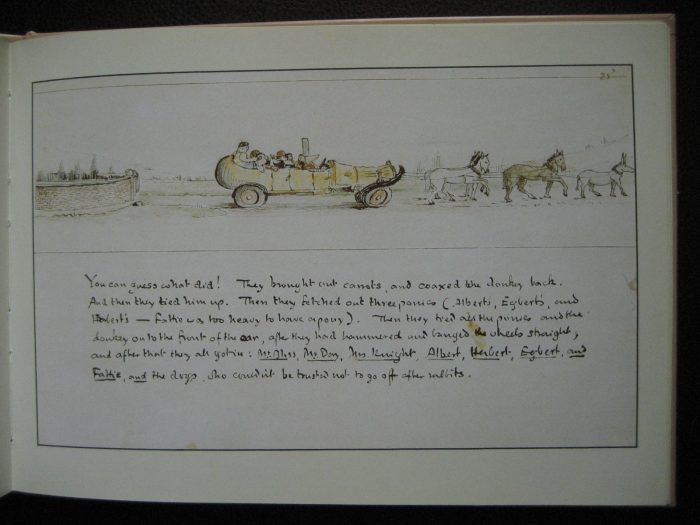 You can guess what did! They brought out carrots, and coaxed the donkey back.
And then they tied him up. Then they fetched out three ponies (Albert's, Egbert's, and
Herbert's — Fattie was too heavy to have a pony). Then they tied all the ponies and the
donkey on to the front of the car, after they had hammered and banged the wheels straight,
and after that they all got in: Mr. Bliss, Mr. Day, Mrs. Knight, Albert, Herbert, Egbert, and
Fattie, and the dogs, who couldn't be trusted not to go off after rabbits.